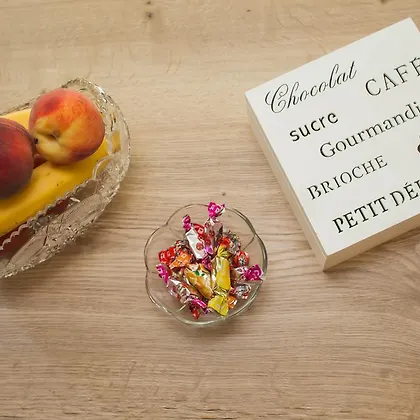 Chocolat
CAFÉ
sucre
Gourmandi
BRIOCHE
PETIT DÉ